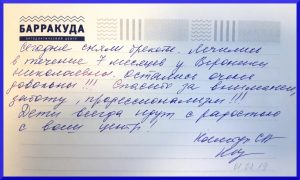 БАРРАКУДА
ОРТОДОНТИЧЕСКИЙ ЦЕНТР
Сегодня сняли брекеты. Лечились
в течение 7 месяцев у Вероники
Николаевны, остались очень
довольны!!! Спасибо за внимание,
заботу, профессионализм!!!
Дети всегда идут с радостью
в ваш центр!